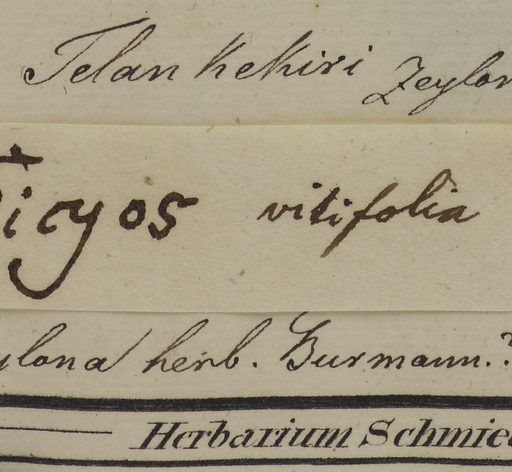 Telan Kekiri Zeylon
Sicyos vitifolia
ylona herb. Burmann.?
Herbarium Schmied